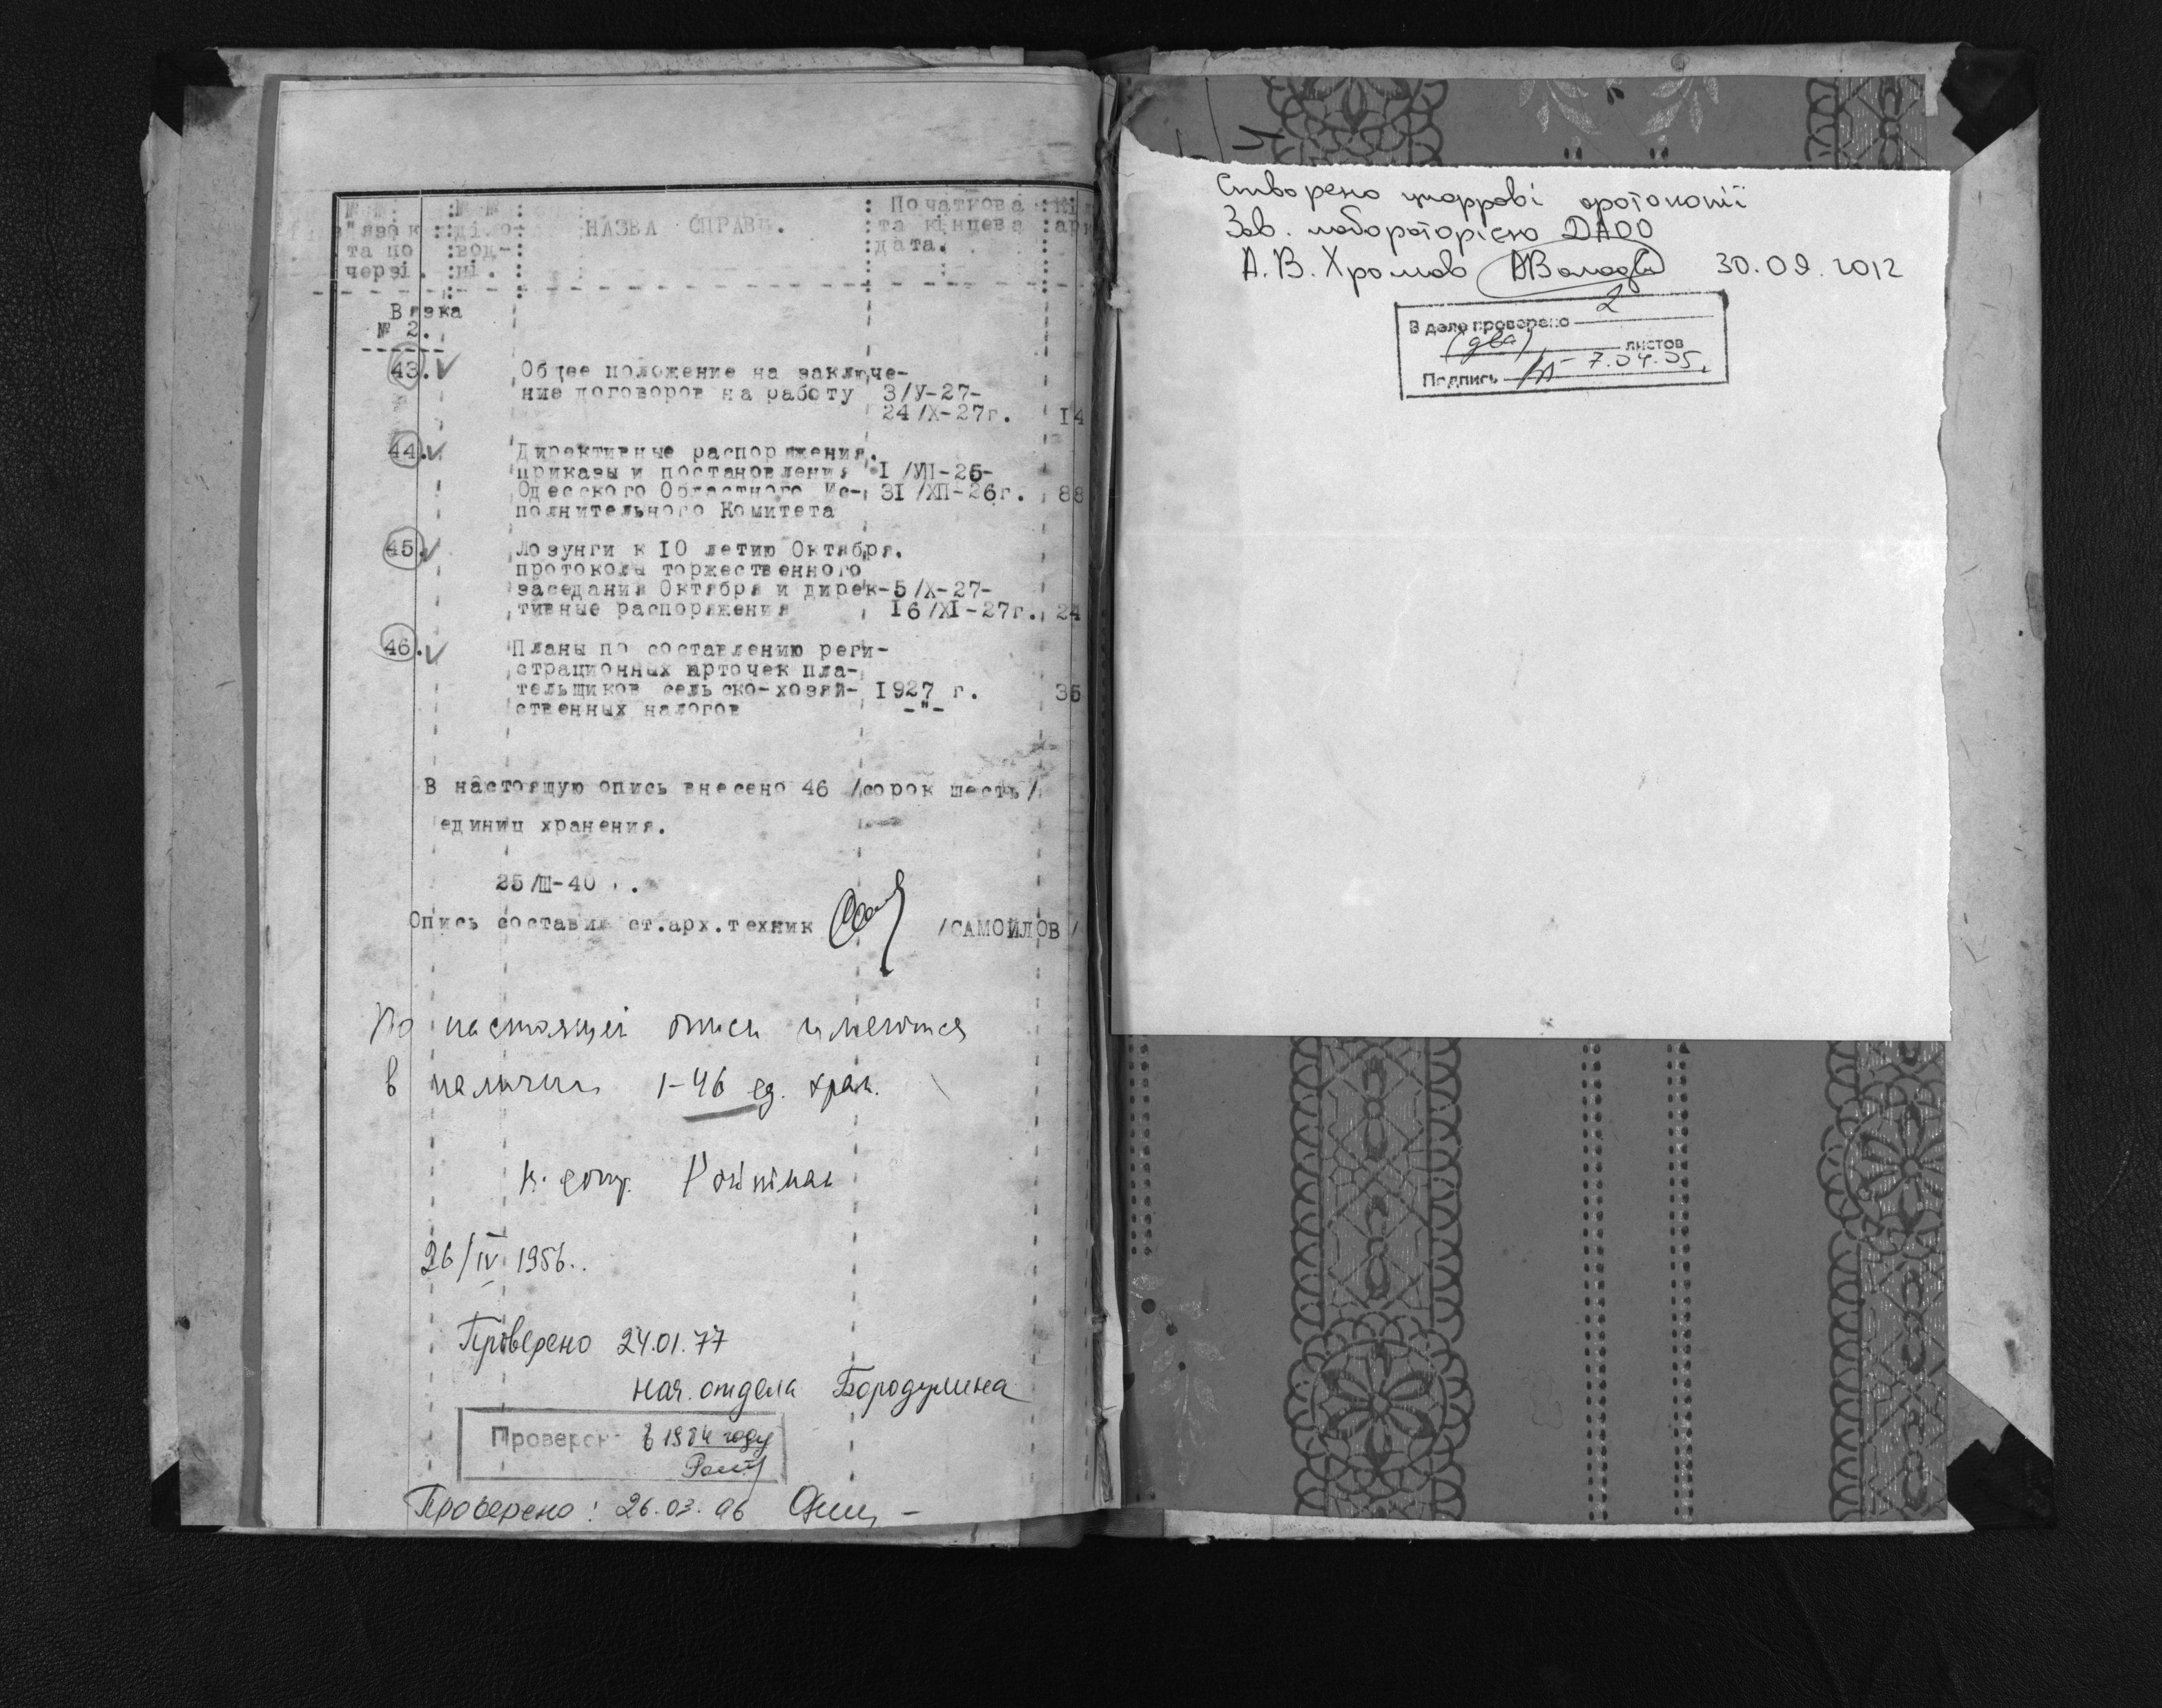 № №
в"язок
та по
черзі.
№ №
діло-
вод-
ні.
НАЗВА СПРАВИ.
Початкова
та кінцева
дата.
Вязка
№ 2.
43. Общее положение на заключе-
ние договоров на работу 3/У-27-
24/Х-27г. 14
44. Директивные распоряжения.
приказы и постановления I/УП-25-
Одесского Областного Ис- 31/ХП-26г. 88
полнительного Комитета
45. Лозунги к 10 летию Октября.
протокола торжественного
заседания Октября и дирек- 5/Х-27-
тивные распоряжения 16/XI-27г. 24
46. Планы по составлению реги-
страционных карточек пла-
тельщиков сельско-хозяй- 1927 г. 35
ственных налогов -"-
В настоящую опись внесено 46 /сорок шесть/
единиц хранения.
25/Ш-40
Опись составил ст.арх.техник /САМОЙЛОВ/
По настоящей описи имеются
в наличии 1-46 ед. хран.
Ройтман
26/IV 1956.
Проверено 24.01.77
нач. отдела Бородулина
Проверено в 1984 году
Проверено: 26.03.96
Створено цифрові фотокопії
Зав. лабораторією ДАОО
А. В. Хромов 30.09.2012
В деле проверено 2
(два) листов
Подпись 7.04.05.